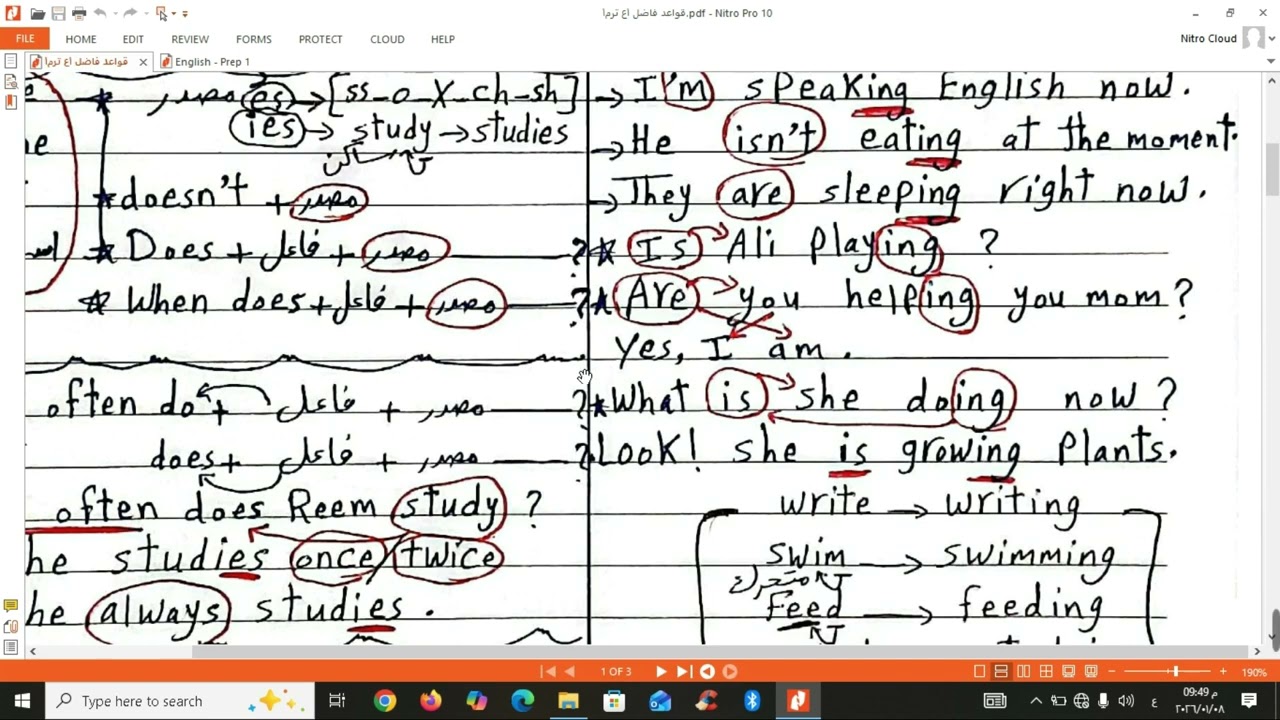 قواعد فاضل اع ترم١.pdf - Nitro Pro 10
FILE HOME EDIT REVIEW FORMS PROTECT CLOUD HELP
Nitro Cloud
قواعد فاضل اع ترم١
English - Prep 1
مصدر es → [ss-o-x-ch-sh]
ies → study → studies
ساكن
* doesn't + مصدر
* Does + فاعل + مصدر ?
* When does + فاعل + مصدر ?
often do + فاعل + مصدر ?
does + فاعل + مصدر ?
often does Reem study ?
he studies once / twice
he always studies .
→ I'm speaking English now.
→ He isn't eating at the moment.
→ They are sleeping right now.
* Is Ali playing ?
* Are you helping you mom ?
Yes, I am .
* What is she doing now ?
Look! she is growing plants.
write → writing
swim → swimming
متحرك
feed → feeding
1 OF 3
190%
Type here to search
ع
09:49 م
٢٠٢٦/٠١/٠٨